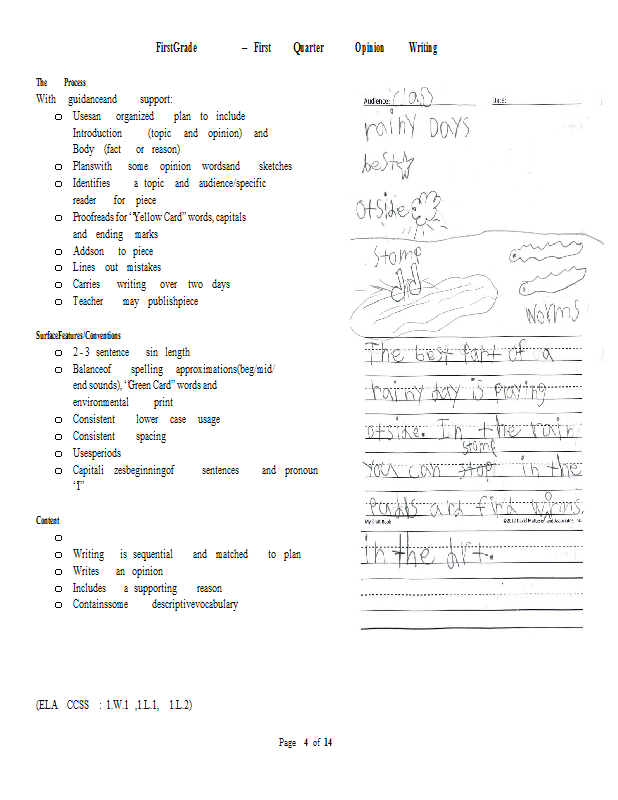 FirstGrade – First Quarter Opinion Writing
The Process
With guidanceand support:
Usesan organized plan to include
Introduction (topic and opinion) and
Body (fact or reason)
Planswith some opinion wordsand sketches
Identifies a topic and audience/specific
reader for piece
Proofreads for "Yellow Card" words, capitals
and ending marks
Addson to piece
Lines out mistakes
Carries writing over two days
Teacher may publishpiece
SurfaceFeatures/Conventions
2 - 3 sentence sin length
Balanceof spelling approximations(beg/mid/
end sounds), "Green Card" words and
environmental print
Consistent lower case usage
Consistent spacing
Usesperiods
Capitali zesbeginningof sentences and pronoun
"I"
Content
Writing is sequential and matched to plan
Writes an opinion
Includes a supporting reason
Containssome descriptivevocabulary
(ELA CCSS : 1.W.1 ,1.L.1, 1.L.2)
Page 4 of 14
Audience: class Date:
rainy DAYS
best
otside
stomp
worms
The best part of a
rainy day is playing
otside. In the rain
stomp
you can stop in the
and find worms.
My Draft Book ©2012 David Matteson and Associates, Inc.
in the dirt.